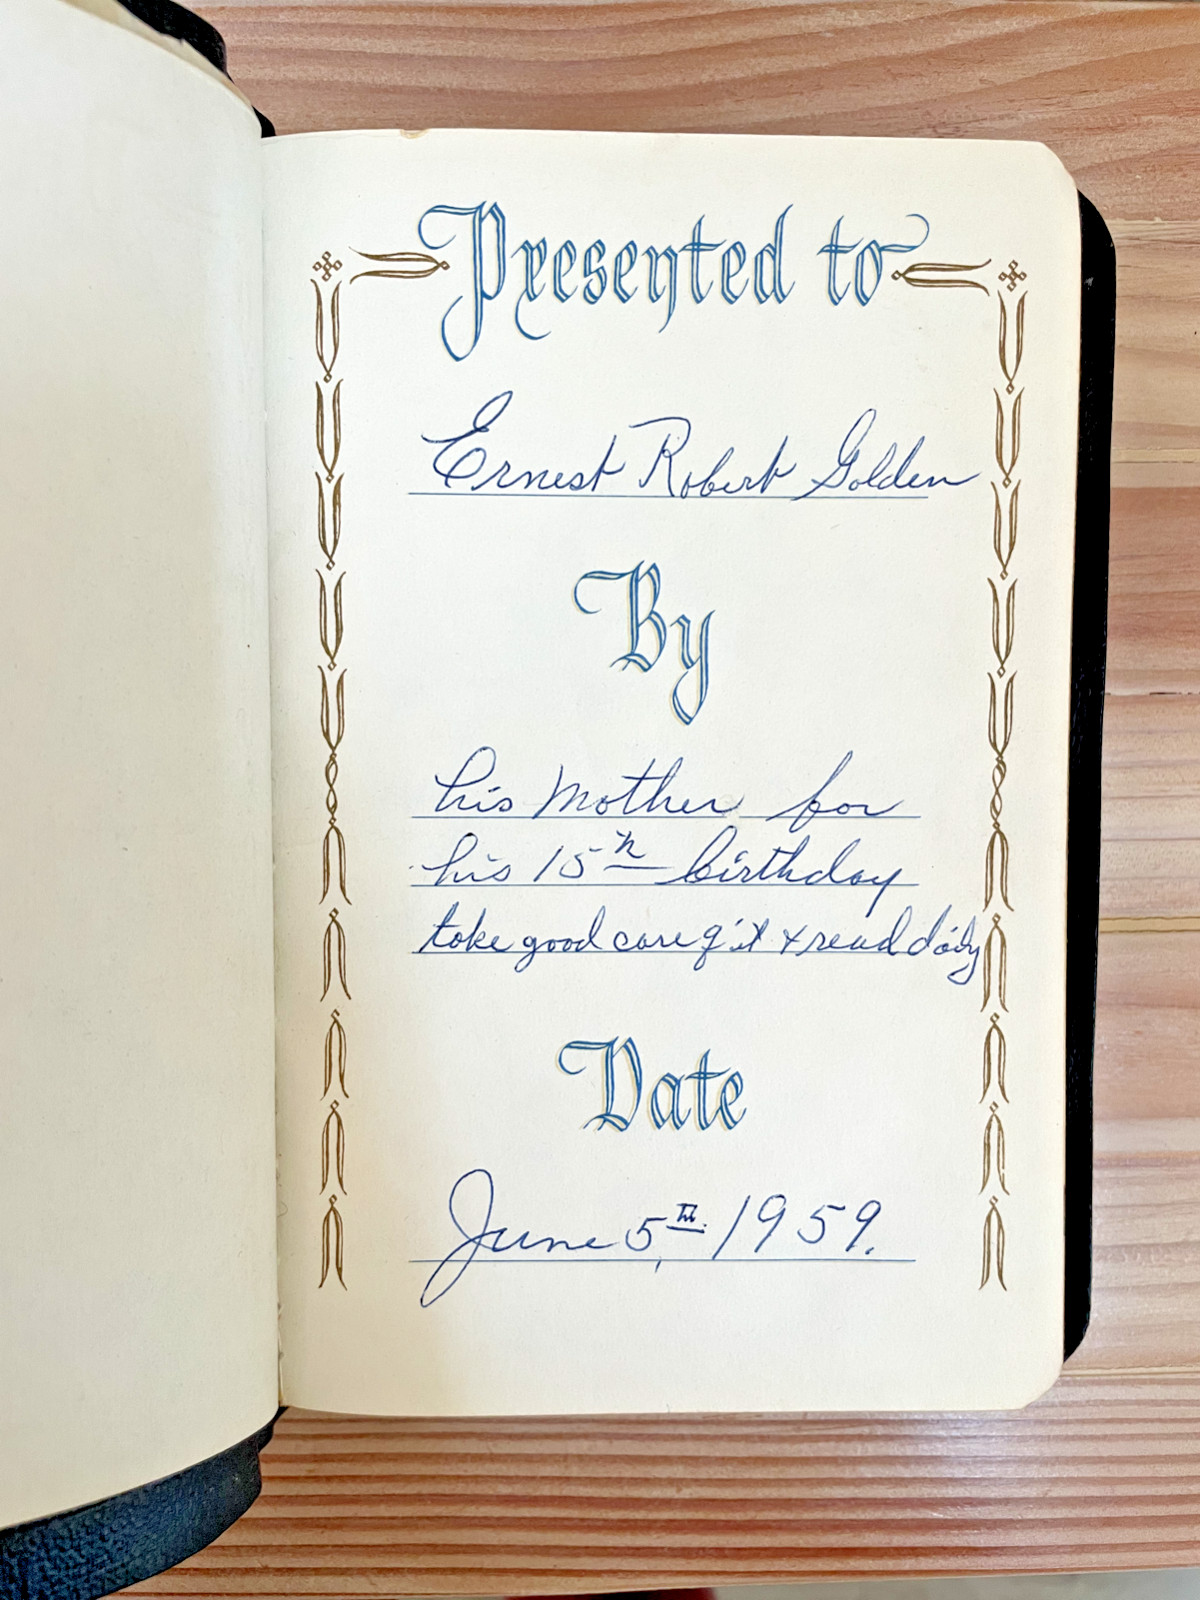 Presented to
Ernest Robert Golden
By
his Mother for
his 15th birthday
take good care of it & read daily
Date
June 5th. 1959.